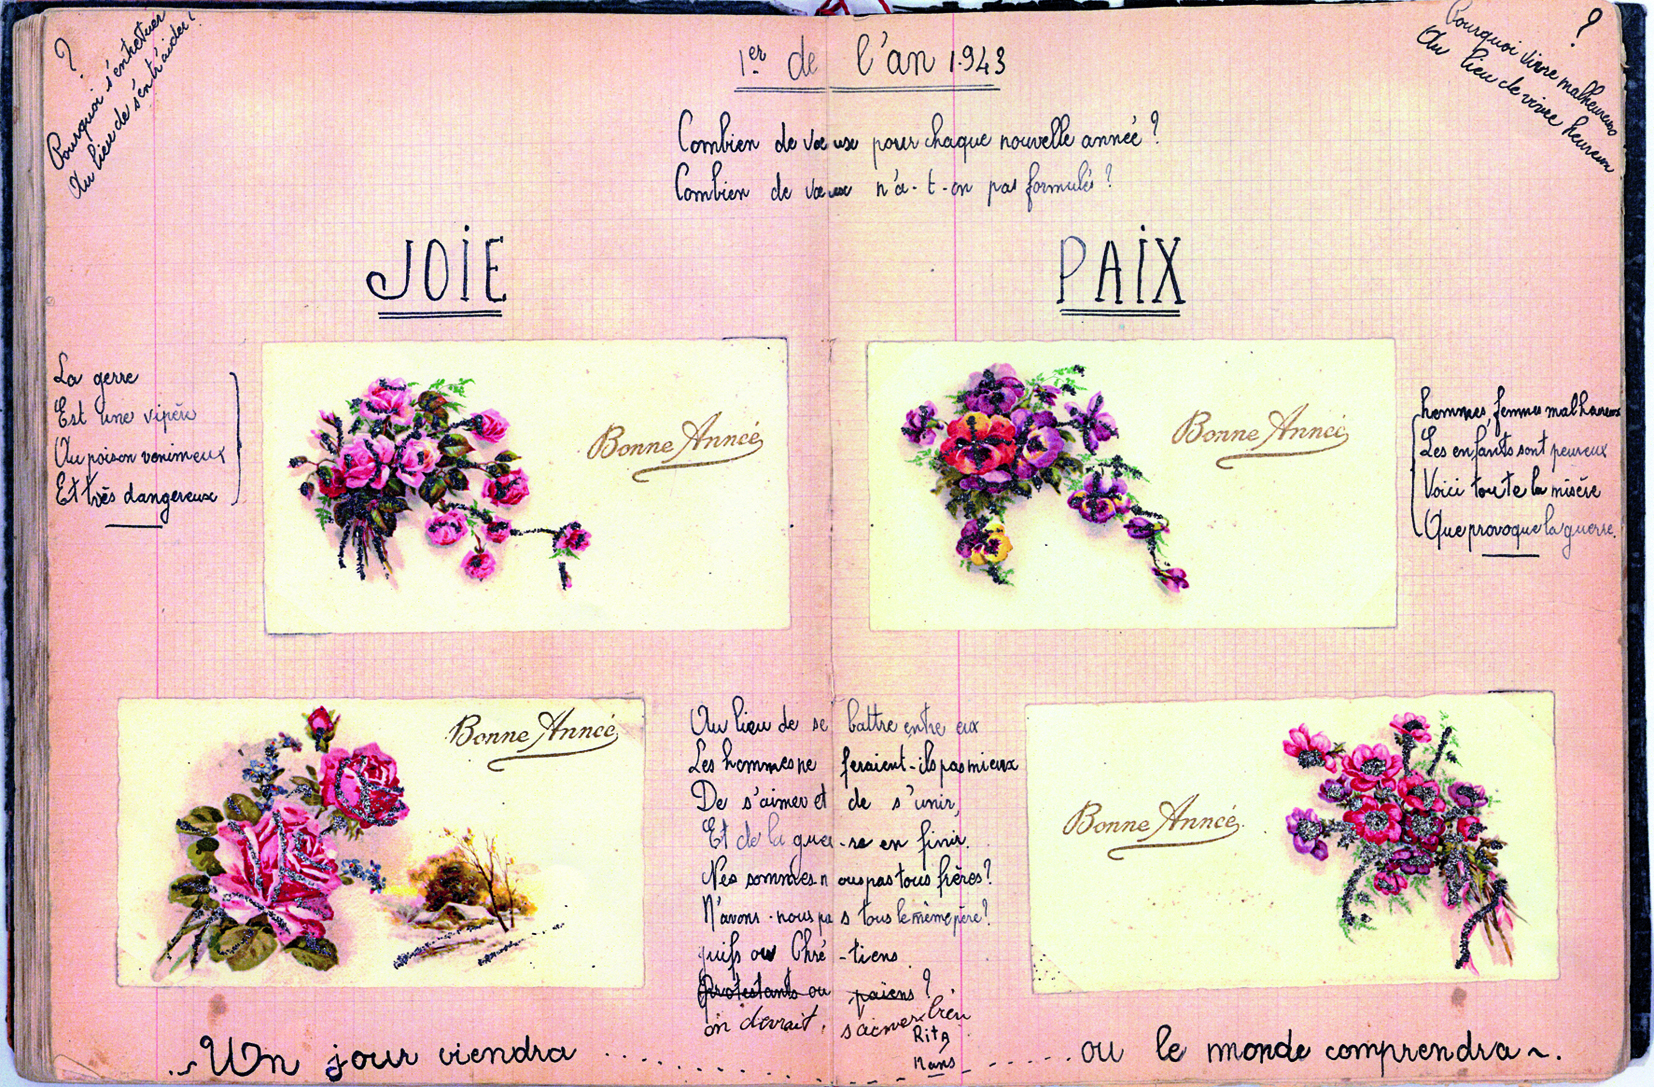 ?
Pourquoi s'entretuer
Au lieu de s'entraider !
1er de l'an 1943
?
Pourquoi vivre malheureux
Au lieu de vivre heureux
Combien de vœux pour chaque nouvelle année ?
Combien de vœux n'a-t-on pas formulés ?
JOIE
PAIX
La gerre
Est une vipère
Au poison venimeux
Et très dangereux
Bonne Année
Bonne Année
hommes, femmes malheureux
Les enfants sont peureux
Voici toute la misère
Que provoque la guerre.
Bonne Année
Au lieu de se battre entre eux
Les hommes ne feraient-ils pas mieux
De s'aimer et de s'unir,
Et de la guer-re en finir.
Ne sommes nous pas tous frères ?
N'avons-nous pas tous le même père ?
juifs ou Chré-tiens
Protestants ou païens ?
on devrait, s'aimer bien
Rita
Bonne Année
Un jour viendra ..... ..... ou le monde comprendra ~.